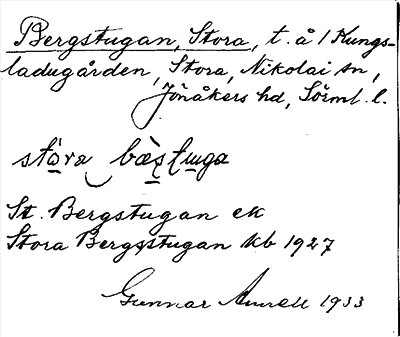 Bergstugan, Stora, t. å 1 Kungs-
ladugården, Stora, Nikolai sn,
Jönåkers hd, Sörml. l.
stōra bæ̀stuga
St. Bergstugan ek
Stora Bergsstugan kb 1927
Gunnar 1933